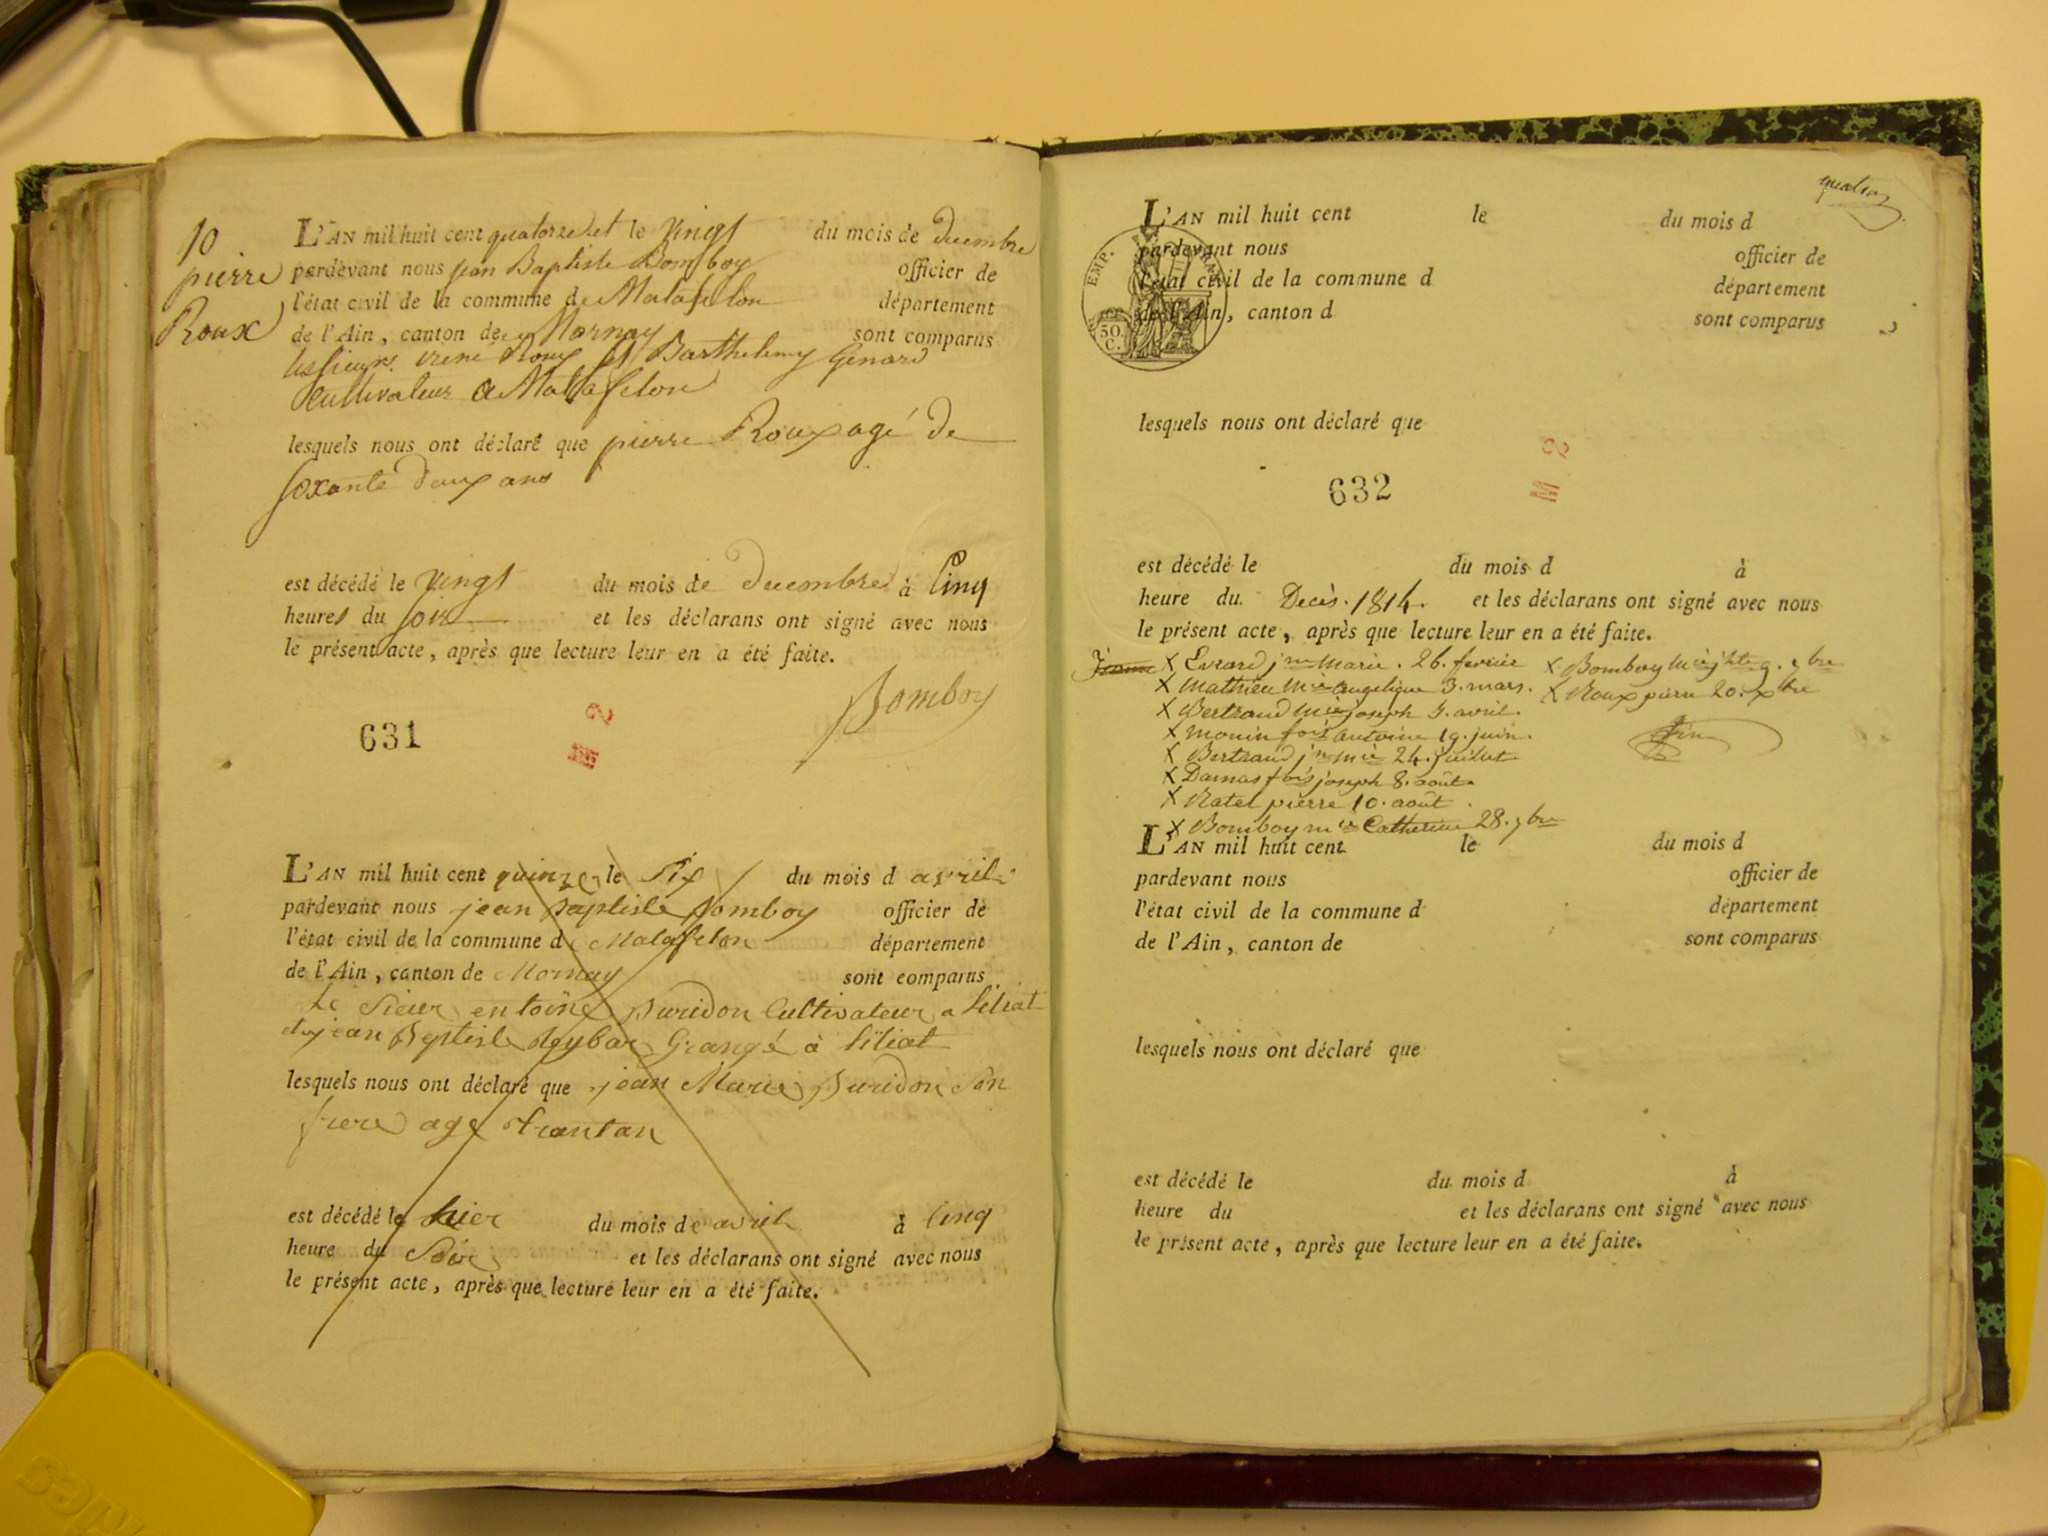 10
pierre
Roux
L'AN mil huit cent quatorze et le vingt du mois de decembre
pardevant nous jean Baptiste Bomboy officier de
l'état civil de la commune de Matafelon département
de l'Ain, canton de Mornay sont comparus
les sieurs irene Roux et Barthelemy Genard
cultivateur a Matafelon
lesquels nous ont déclaré que pierre Roux agé de
soxante deux ans
est décédé le vingt du mois de decembre à Cinq
heures du soir et les déclarans ont signé avec nous
le présent acte, après que lecture leur en a été faite.
Bomboy
631
M 2
L'AN mil huit cent quinze le six du mois d avril
pardevant nous jean Baptiste Bomboy officier de
l'état civil de la commune d Matafelon département
de l'Ain, canton de Mornay sont comparus
Le sieur entoine Buridon Cultivateur a siliat
jean Beptiste Grangé à siliat
lesquels nous ont déclaré que jean Marie Buridon son
frere age trantan
est décédé le hier du mois de avril à cinq
heure du Soir et les déclarans ont signé avec nous
le présent acte, après que lecture leur en a été faite.
quatre
L'AN mil huit cent le du mois d
pardevant nous officier de
l'état civil de la commune d département
de l'Ain, canton d sont comparus
EMP.
50
C.
lesquels nous ont déclaré que
632
M 2
est décédé le du mois d à
heure du Decès. 1814. et les déclarans ont signé avec nous
le présent acte, après que lecture leur en a été faite.
X Evrard jne marie. 26. fevrier X Bomboy mie jhte 9. 7bre
X mathieu mie angelique 3. mars. X Roux pierre 20. Xbre
X Bertrand mie joseph 5. avril.
X monin fois antoine 19. juin. fin
X Bertrand jn mie 24. juillet
X Damas fois joseph 8. août.
X Ratel pierre 10. août.
X Bomboy mie Catherine 28. 7bre
L'AN mil huit cent le du mois d
pardevant nous officier de
l'état civil de la commune d département
de l'Ain, canton de sont comparus
lesquels nous ont déclaré que
est décédé le du mois d à
heure du et les déclarans ont signé avec nous
le présent acte, après que lecture leur en a été faite.